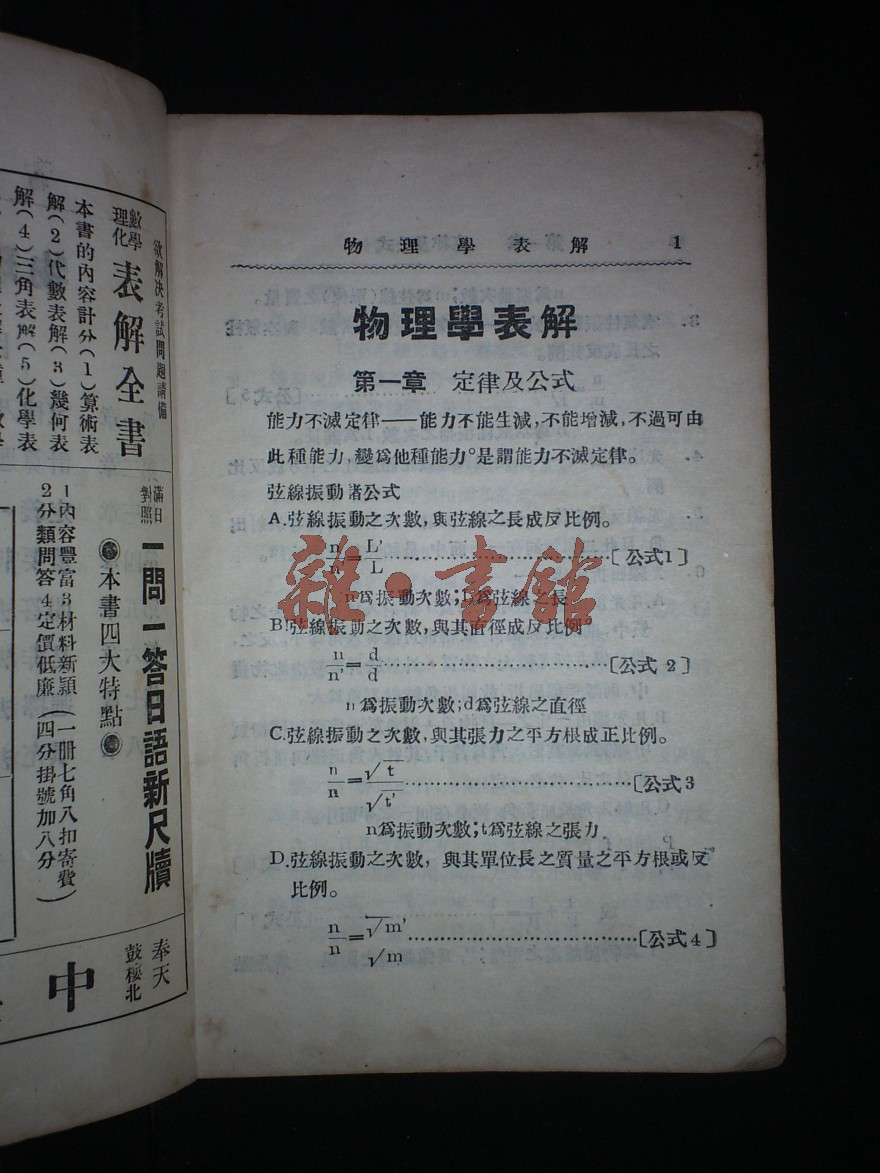 物理學表解 1
物理學表解
第一章 定律及公式
能力不滅定律——能力不能生滅,不能增減,不過可由
此種能力,變爲他種能力。是謂能力不滅定律。
弦線振動諸公式
A.弦線振動之次數,與弦線之長成反比例。
n/n'=L'/L……………………[公式1]
n爲振動次數;L爲弦線之長
B.弦線振動之次數,與其直徑成反比例
n/n'=d/d……………………[公式2]
n爲振動次數;d爲弦線之直徑
C.弦線振動之次數,與其張力之平方根成正比例。
n/n=√t/√t'……………………[公式3
n爲振動次數;t爲弦線之張力
D.弦線振動之次數,與其單位長之質量之平方根或反
比例。
n/n=√m'/√m……………………[公式4]
雜·書館
欲解決考試問題請備
數學
理化
表解全書
本書的內容計分(1)算術表
解(2)代數表解(3)幾何表
解(4)三角表解(5)化學表
滿日
對照
一問一答日語新尺牘
●本書四大特點●
1內容豐富3材料新穎(一冊七角八扣寄費)
2分類問答4定價低廉(四分掛號加八分
奉天
鼓樓北
中